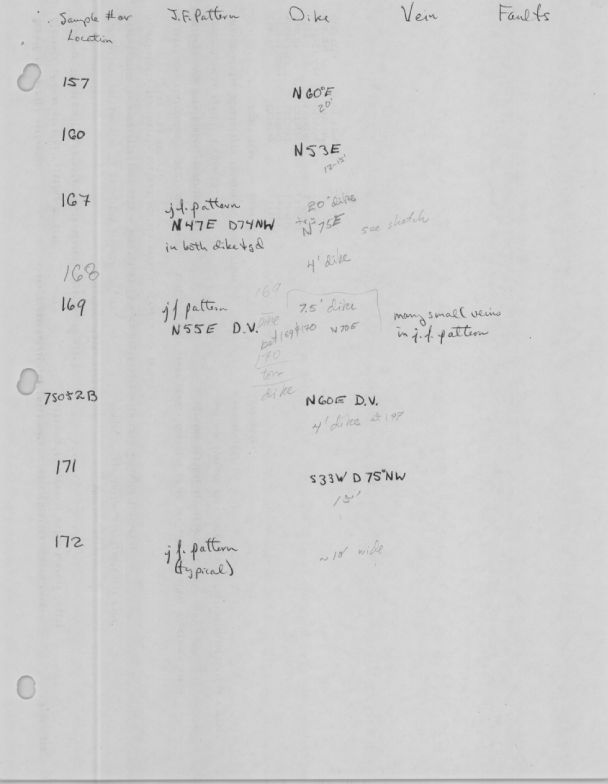 Sample # or Location J.F. Pattern Dike Vein Faults
157 N60°E
20'
160 N53E
12-15'
167 j.f. pattern 20' dike
N47E D74NW N75E see sketch
in both dike & gd
4' dike
168
169 j f pattern 7.5' dike many small veins
N55E D.V. bet 169 & 170 N70E in j.f. pattern
dike
75052B N60E D.V.
4' dike @ 197
171 S33W D75°NW
15'
172 j f. pattern ~10' wide
(typical)